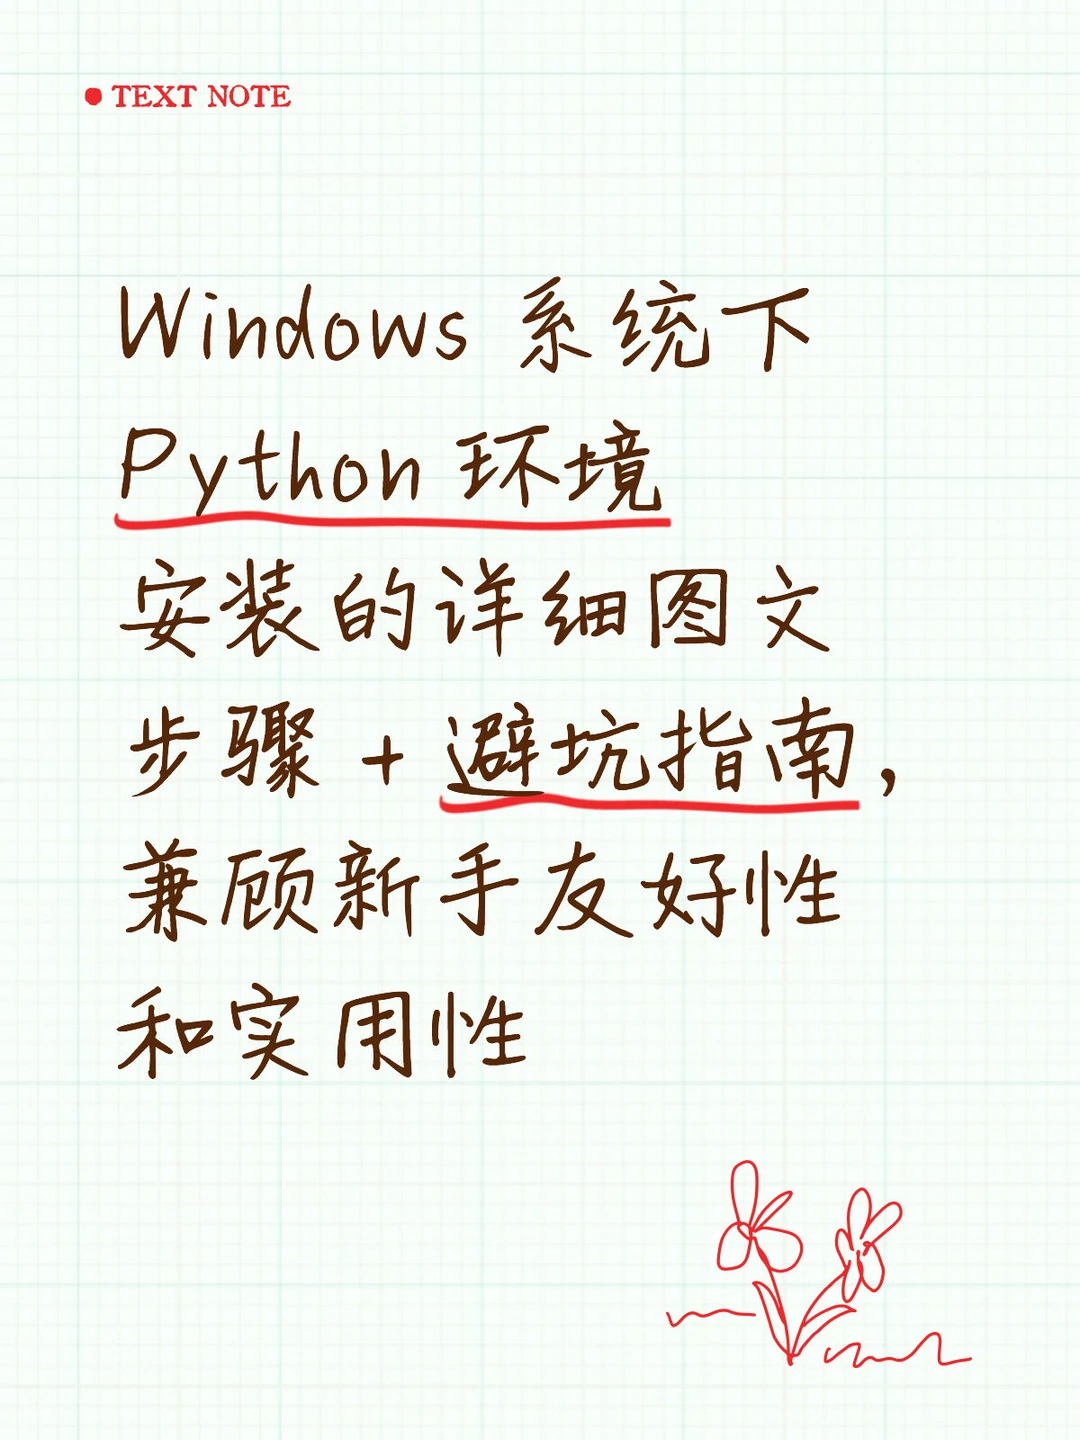 TEXT NOTE
Windows 系统下
Python 环境
安装的详细图文
步骤 + 避坑指南，
兼顾新手友好性
和实用性